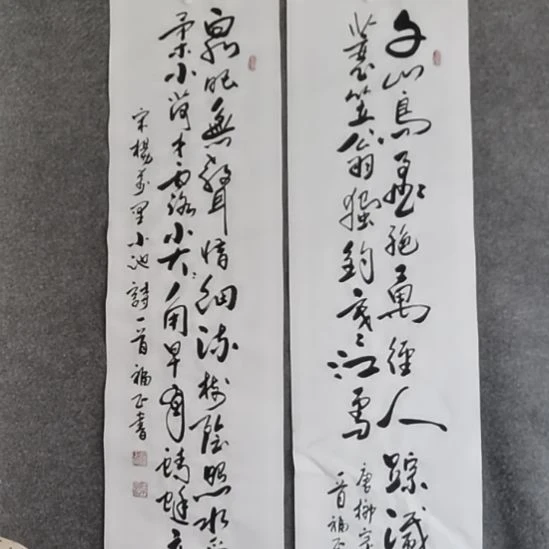 千山鳥飛絕萬徑人踪滅
蓑笠翁獨釣寒江雪
唐柳宗
一首福正
泉眼無聲惜細流樹陰照水愛
柔小荷才露尖尖角早有蜻蜓立
宋楊萬里小池詩一首福正書